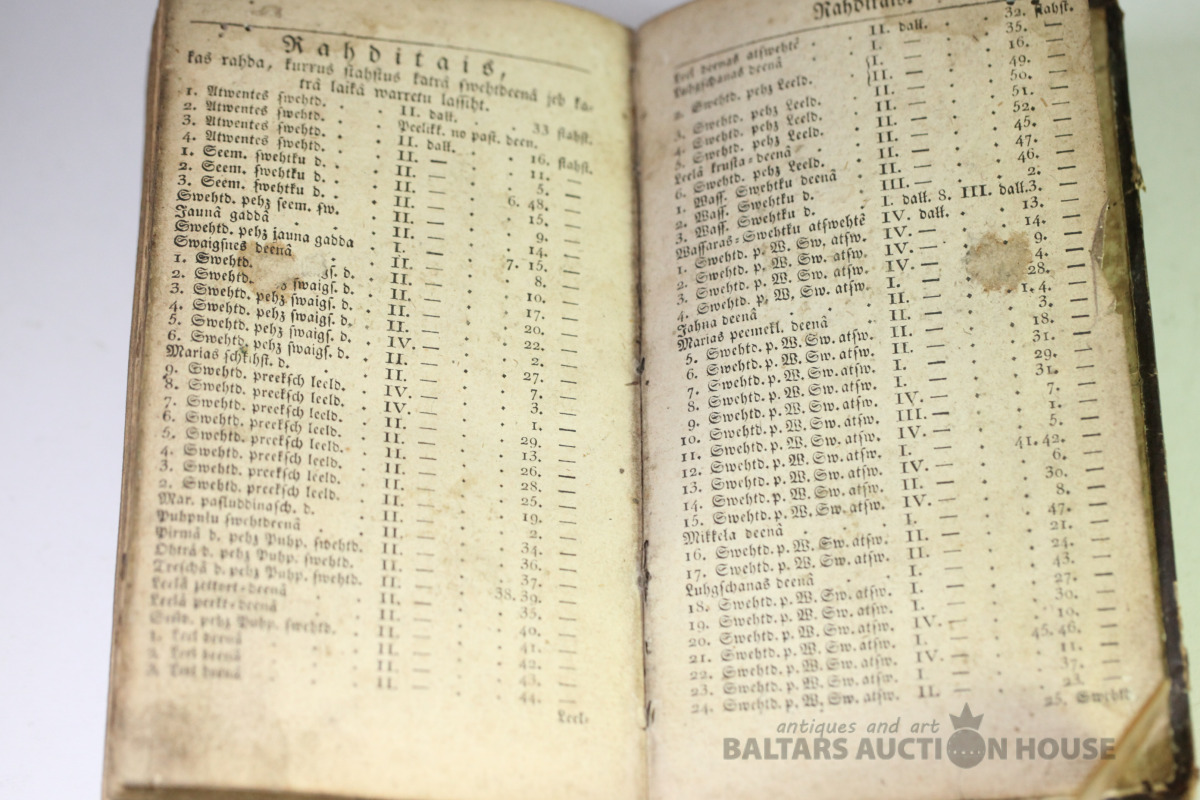 Rahditais,
kas rahda, kurrus stahstus katrâ swehtdeenâ jeb ka-
trâ laikâ warretu lassiht.
1. Atwentes swehtd. . II. dall. . 33 stahst.
2. Atwentes swehtd. . Peelikk. no past. deen.
3. Atwentes swehtd. . II. dall. . 16. stahst.
4. Atwentes swehtd. . II. — . 11. —
1. Seem. swehtku d. . II. — . 5. —
2. Seem. swehtku d. . II. — . 6. 48. —
3. Seem. swehtku d. . II. — . 15. —
Swehtd. pehz seem. sw. II. — . 9. —
Jaunâ gaddâ . II. — . 14. —
Swehtd. pehz jauna gadda . I. — . 7. 15. —
Swaigsnes deenâ . II. — . 8. —
1. Swehtd. gs. d. . II. — . 10. —
2. Swehtd. swaigs. d. . II. — . 17. —
3. Swehtd. pehz swaigs. d. . II. — . 20. —
4. Swehtd. pehz swaigs. d. . IV. — . 22. —
5. Swehtd. pehz swaigs. d. . II. — . 2. —
6. Swehtd. pehz swaigs. d. . II. — . 27. —
Marias schkihst. d. . IV. — . 7. —
9. Swehtd. preeksch leeld. . IV. — . 3. —
8. Swehtd. preeksch leeld. . II. — . 1. —
7. Swehtd. preeksch leeld. . II. — . 29. —
6. Swehtd. preeksch leeld. . II. — . 13. —
5. Swehtd. preeksch leeld. . II. — . 26. —
4. Swehtd. preeksch leeld. . II. — . 28. —
3. Swehtd. preeksch leeld. . II. — . 25. —
2. Swehtd. preeksch leeld. . II. — . 19. —
Mar. pasluddinasch. d. . II. — . 2. —
Puhpulu swehtdeenâ . II. — . 34. —
Pirmâ d. pehz Puhp. swehtd. . II. — . 36. —
Ohtrâ d. pehz Puhp. swehtd. . II. — . 37. —
Treschâ d. pehz Puhp. swehtd. . II. — . 38. 39. —
Leelâ zettort-deenâ . II. — . 35. —
Leelâ peekt-deenâ . II. — . 40. —
Sestd. pehz Puhp. swehtd. . II. — . 41. —
1. Leel deenâ . II. — . 42. —
2. Leel deenâ . II. — . 43. —
3. Leel deenâ . II. — . 44. —
Leel-
Rahditais.
Leel deenas atswehtê . II. dall. . 32. stahst.
Luhgschanas deenâ . I. — . 35. —
2. Swehtd. pehz Leeld. {I. — . 16. —
{II. — . 49. —
3. Swehtd. pehz Leeld. . II. — . 50. —
4. Swehtd. pehz Leeld. . II. — . 51. —
5. Swehtd. pehz Leeld. . II. — . 52. —
Leelâ krusta-deenâ . II. — . 45. —
6. Swehtd. pehz Leeld. . II. — . 47. —
1. Wass. Swehtku deenâ . II. — . 46. —
2. Wass. Swehtku d. . III. — . 2. —
3. Wass. Swehtku d. . I. dall. 8. III. dall. 3. —
Wassaras-Swehtku atswehtê IV. dall. . 13. —
1. Swehtd. p. W. Sw. atsw. IV. — . 14. —
2. Swehtd. p. W. Sw. atsw. IV. — . 9. —
3. Swehtd. p. W. Sw. atsw. IV. — . 4. —
4. Swehtd. p. W. Sw. atsw. I. — . 28. —
Jahna deenâ . II. — . 1. 4. —
Marias peemekl. deenâ . II. — . 3. —
5. Swehtd. p. W. Sw. atsw. II. — . 18. —
6. Swehtd. p. W. Sw. atsw. I. — . 31. —
7. Swehtd. p. W. Sw. atsw. I. — . 29. —
8. Swehtd. p. W. Sw. atsw. IV. — . 31. —
9. Swehtd. p. W. Sw. atsw. III. — . 7. —
10. Swehtd. p. W. Sw. atsw. IV. — . 1. —
11. Swehtd. p. W. Sw. atsw. I. — . 5. —
12. Swehtd. p. W. Sw. atsw. IV. — . 41. 42. —
13. Swehtd. p. W. Sw. atsw. II. — . 6. —
14. Swehtd. p. W. Sw. atsw. IV. — . 30. —
15. Swehtd. p. W. Sw. atsw. I. — . 8. —
Mikkela deenâ . II. — . 47. —
16. Swehtd. p. W. Sw. atsw. II. — . 21. —
17. Swehtd. p. W. Sw. atsw. I. — . 24. —
Luhgschanas deenâ . I. — . 43. —
18. Swehtd. p. W. Sw. atsw. I. — . 27. —
19. Swehtd. p. W. Sw. atsw. IV. — . 30. —
20. Swehtd. p. W. Sw. atsw. I. — . 10. —
21. Swehtd. p. W. Sw. atsw. IV. — . 45. 46. —
22. Swehtd. p. W. Sw. atsw. I. — . 11. —
23. Swehtd. p. W. Sw. atsw. II. — . 37. —
24. Swehtd. p. W. Sw. atsw. 23. —
25. Swehtd
antiques and art
BALTARS AUCTION HOUSE